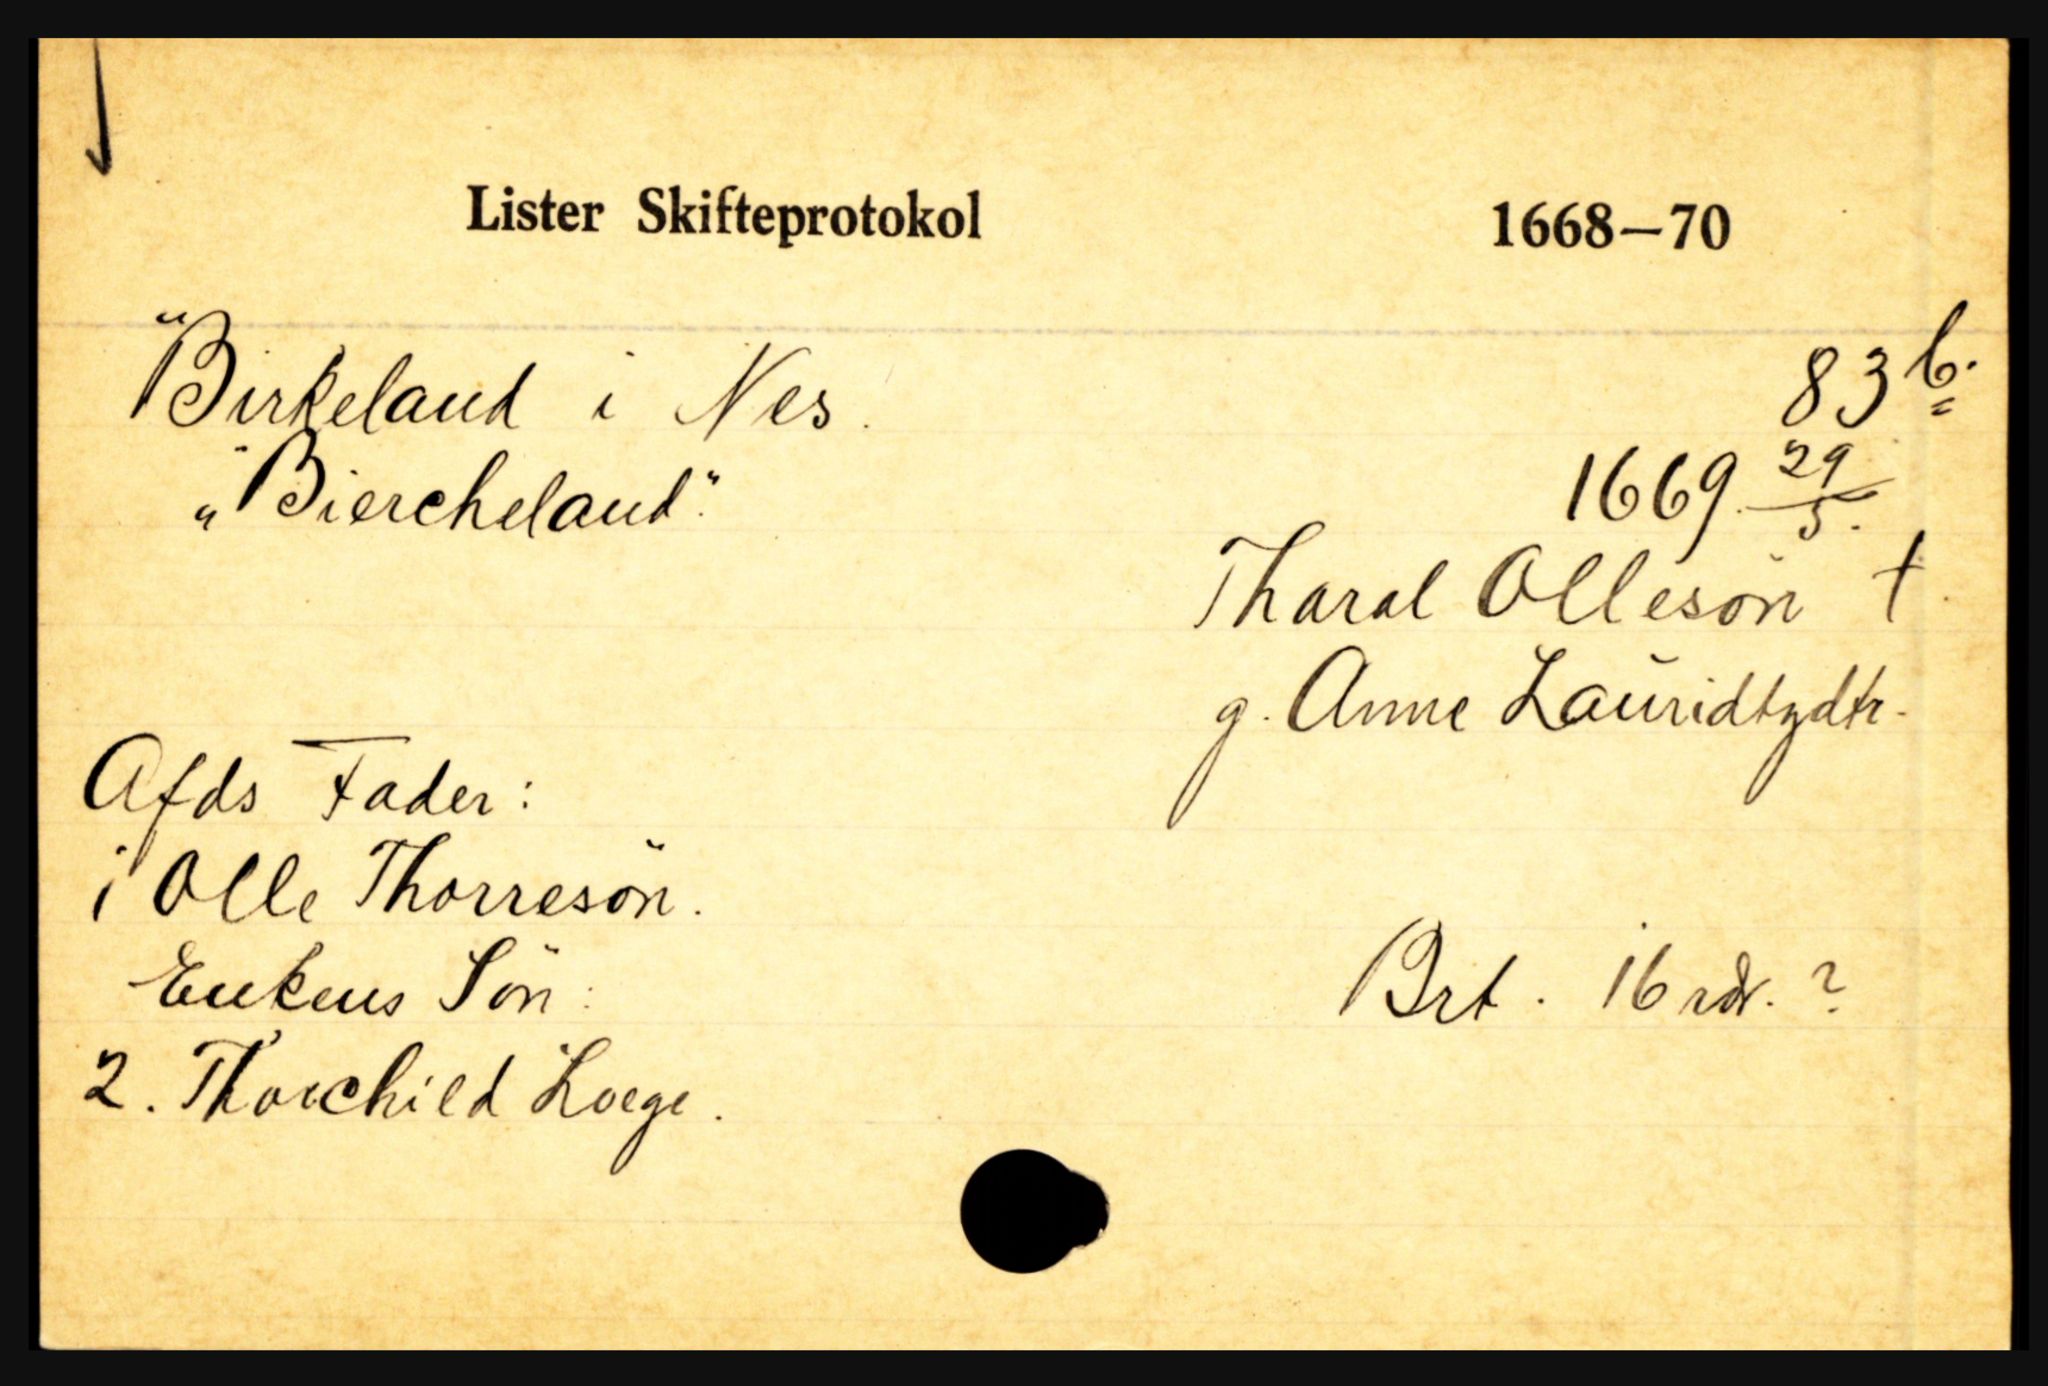 Lister Skifteprotokol 1668—70
"Birkeland i Nes. 83 b.
"Biercheland". 1669 29/5.
Tharal Ollesön †
g. Anne Lauridtzdtr.
Afds Fader:
1 Olle Thorresön.
Enkens Sön: Brt. 16 rdr. ?
2. Thorchild Loege.